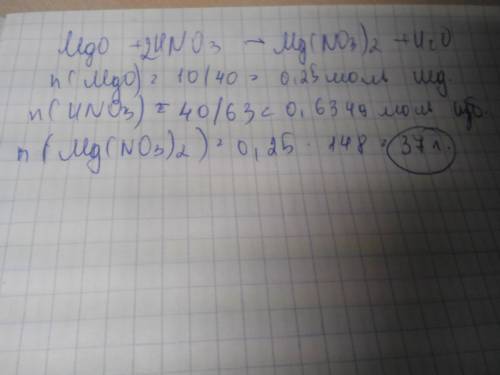 MgO + 2HNO3 → Mg(NO3)2 + H2O
n(MgO) = 10/40 = 0,25 моль нед.
n(HNO3) = 40/63 = 0,6349 моль изб.
n(Mg(NO3)2) = 0,25 · 148 = 37 г.